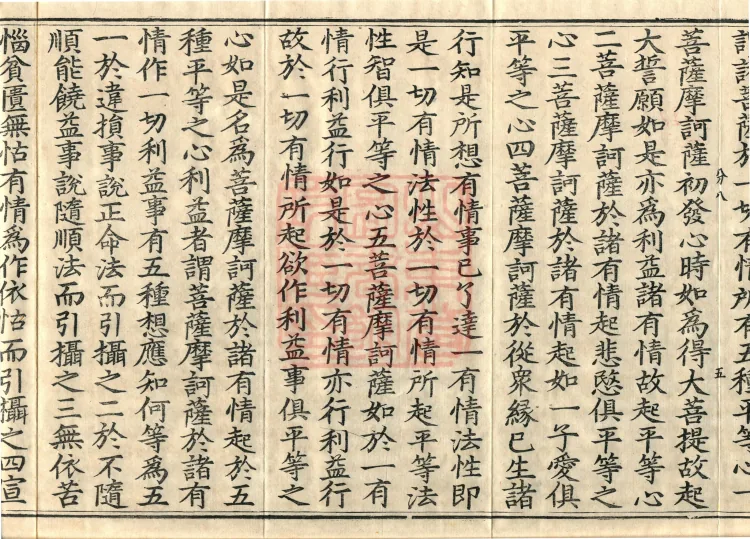 菩薩於一切有情所有五種平等心一
分八
五
菩薩摩訶薩初發心時如爲得大菩提故起
大誓願如是亦爲利益諸有情故起平等心
二菩薩摩訶薩於諸有情起悲愍俱平等之
心三菩薩摩訶薩於諸有情起如一子愛俱
平等之心四菩薩摩訶薩於從衆緣已生諸
行知是所想有情事已了達一有情法性即
是一切有情法性於一切有情所起平等法
性智俱平等之心五菩薩摩訶薩如於一有
情行利益行如是於一切有情亦行利益行
故於一切有情所起欲作利益事俱平等之
心如是名爲菩薩摩訶薩於諸有情起於五
種平等之心利益者謂菩薩摩訶薩於諸有
情作一切利益事有五種想應知何等爲五
一於違損事說正命法而引攝之二於不隨
順能饒益事說隨順法而引攝之三無依苦
惱貧匱無怙有情爲作依怙而引攝之四宣